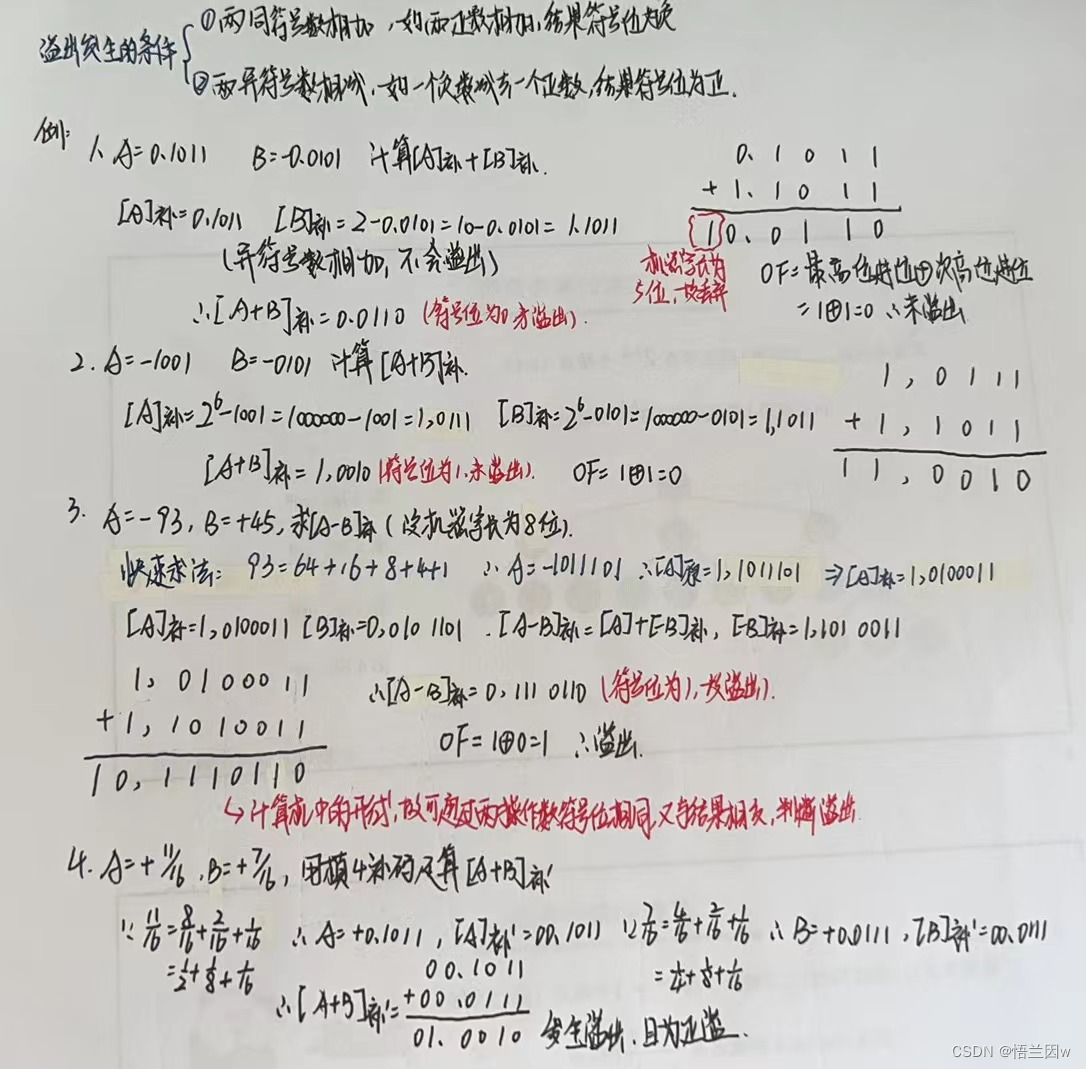 溢出发生的条件
①两同符号数相加,如两正数相加,结果符号位为负
②两异符号数相减,如一个负数减去一个正数,结果符号位为正.
例:
1、A=0.1011 B=-0.0101 计算[A]补+[B]补.
[A]补=0.1011 [B]补=2-0.0101=10-0.0101=1.1011
(异符号数相加,不会溢出)
∴[A+B]补=0.0110 (符号位为0,未溢出).
0.1011
+1.1011
10.0110
机器字长为
5位,故丢弃
OF=最高位进位⊕次高位进位
=1⊕1=0 ∴未溢出
2. A=-1001 B=-0101 计算[A+B]补.
[A]补=2^6-1001=1000000-1001=1,0111 [B]补=2^6-0101=1000000-0101=1,1011
[A+B]补=1,0010 (符号位为1,未溢出). OF=1⊕1=0
1,0111
+1,1011
11,0010
3. A=-93,B=+45,求[A-B]补(设机器字长为8位).
快速求法: 93=64+16+8+4+1 ∴A=-1011101 ∴[A]原=1,1011101 ⇒[A]补=1,0100011
[A]补=1,0100011 [B]补=0,0101101 . [A-B]补=[A]+[-B]补, [-B]补=1,1010011
1,0100011
+1,1010011
10,1110110
∴[A-B]补=0,1110110 (符号位为1,故溢出).
OF=1⊕0=1 ∴溢出.
↳计算机中的形式,故可通过两操作数符号位相同,又与结果相反,判断溢出
4. A=+11/16,B=+7/16,用模4补码运算[A+B]补'
∵11/16=8/16+2/16+1/16 ∴A=+0.1011,[A]补'=00.1011 ∵7/16=4/16+2/16+1/16 ∴B=+0.0111,[B]补'=00.0111
=1/2+1/8+1/16
=1/4+1/8+1/16
00.1011
∴[A+B]补'=+00.0111
01.0010 发生溢出,且为正溢.
CSDN @悟兰因w